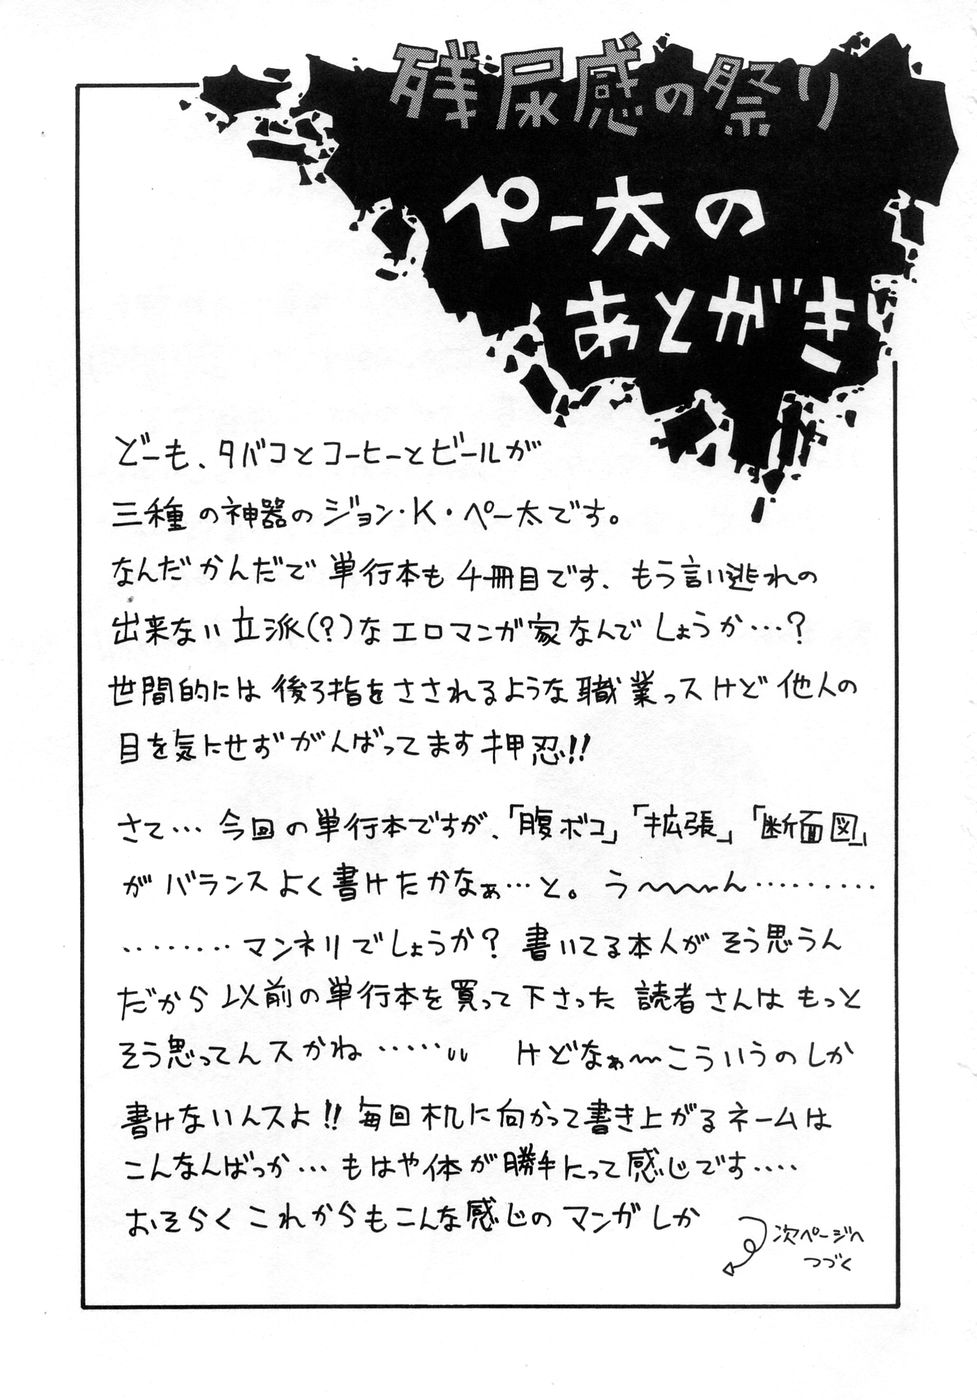 残尿感の祭り
ペー太の
あとがき
どーも、タバコとコーヒーとビールが
三種の神器のジョン・K・ペー太です。
なんだかんだで単行本も4冊目です、もう言い逃れの
出来ない立派(?)なエロマンガ家なんでしょうか…?
世間的には後ろ指をさされるような職業っスけど他人の
目を気にせずがんばってます押忍!!
さて…今回の単行本ですが、「腹ボコ」「拡張」「断面図」
がバランスよく書けたかなぁ…と。う〜〜〜ん………
………マンネリでしょうか?書いてる本人がそう思うん
だから以前の単行本を買って下さった読者さんはもっと
そう思ってんスかね……〟 けどなぁ〜こういうのしか
書けないんスよ!!毎回机に向かって書き上がるネームは
こんなんばっか…もはや体が勝手にって感じです‥‥
おそらくこれからもこんな感じのマンガしか
次ページへ
つづく